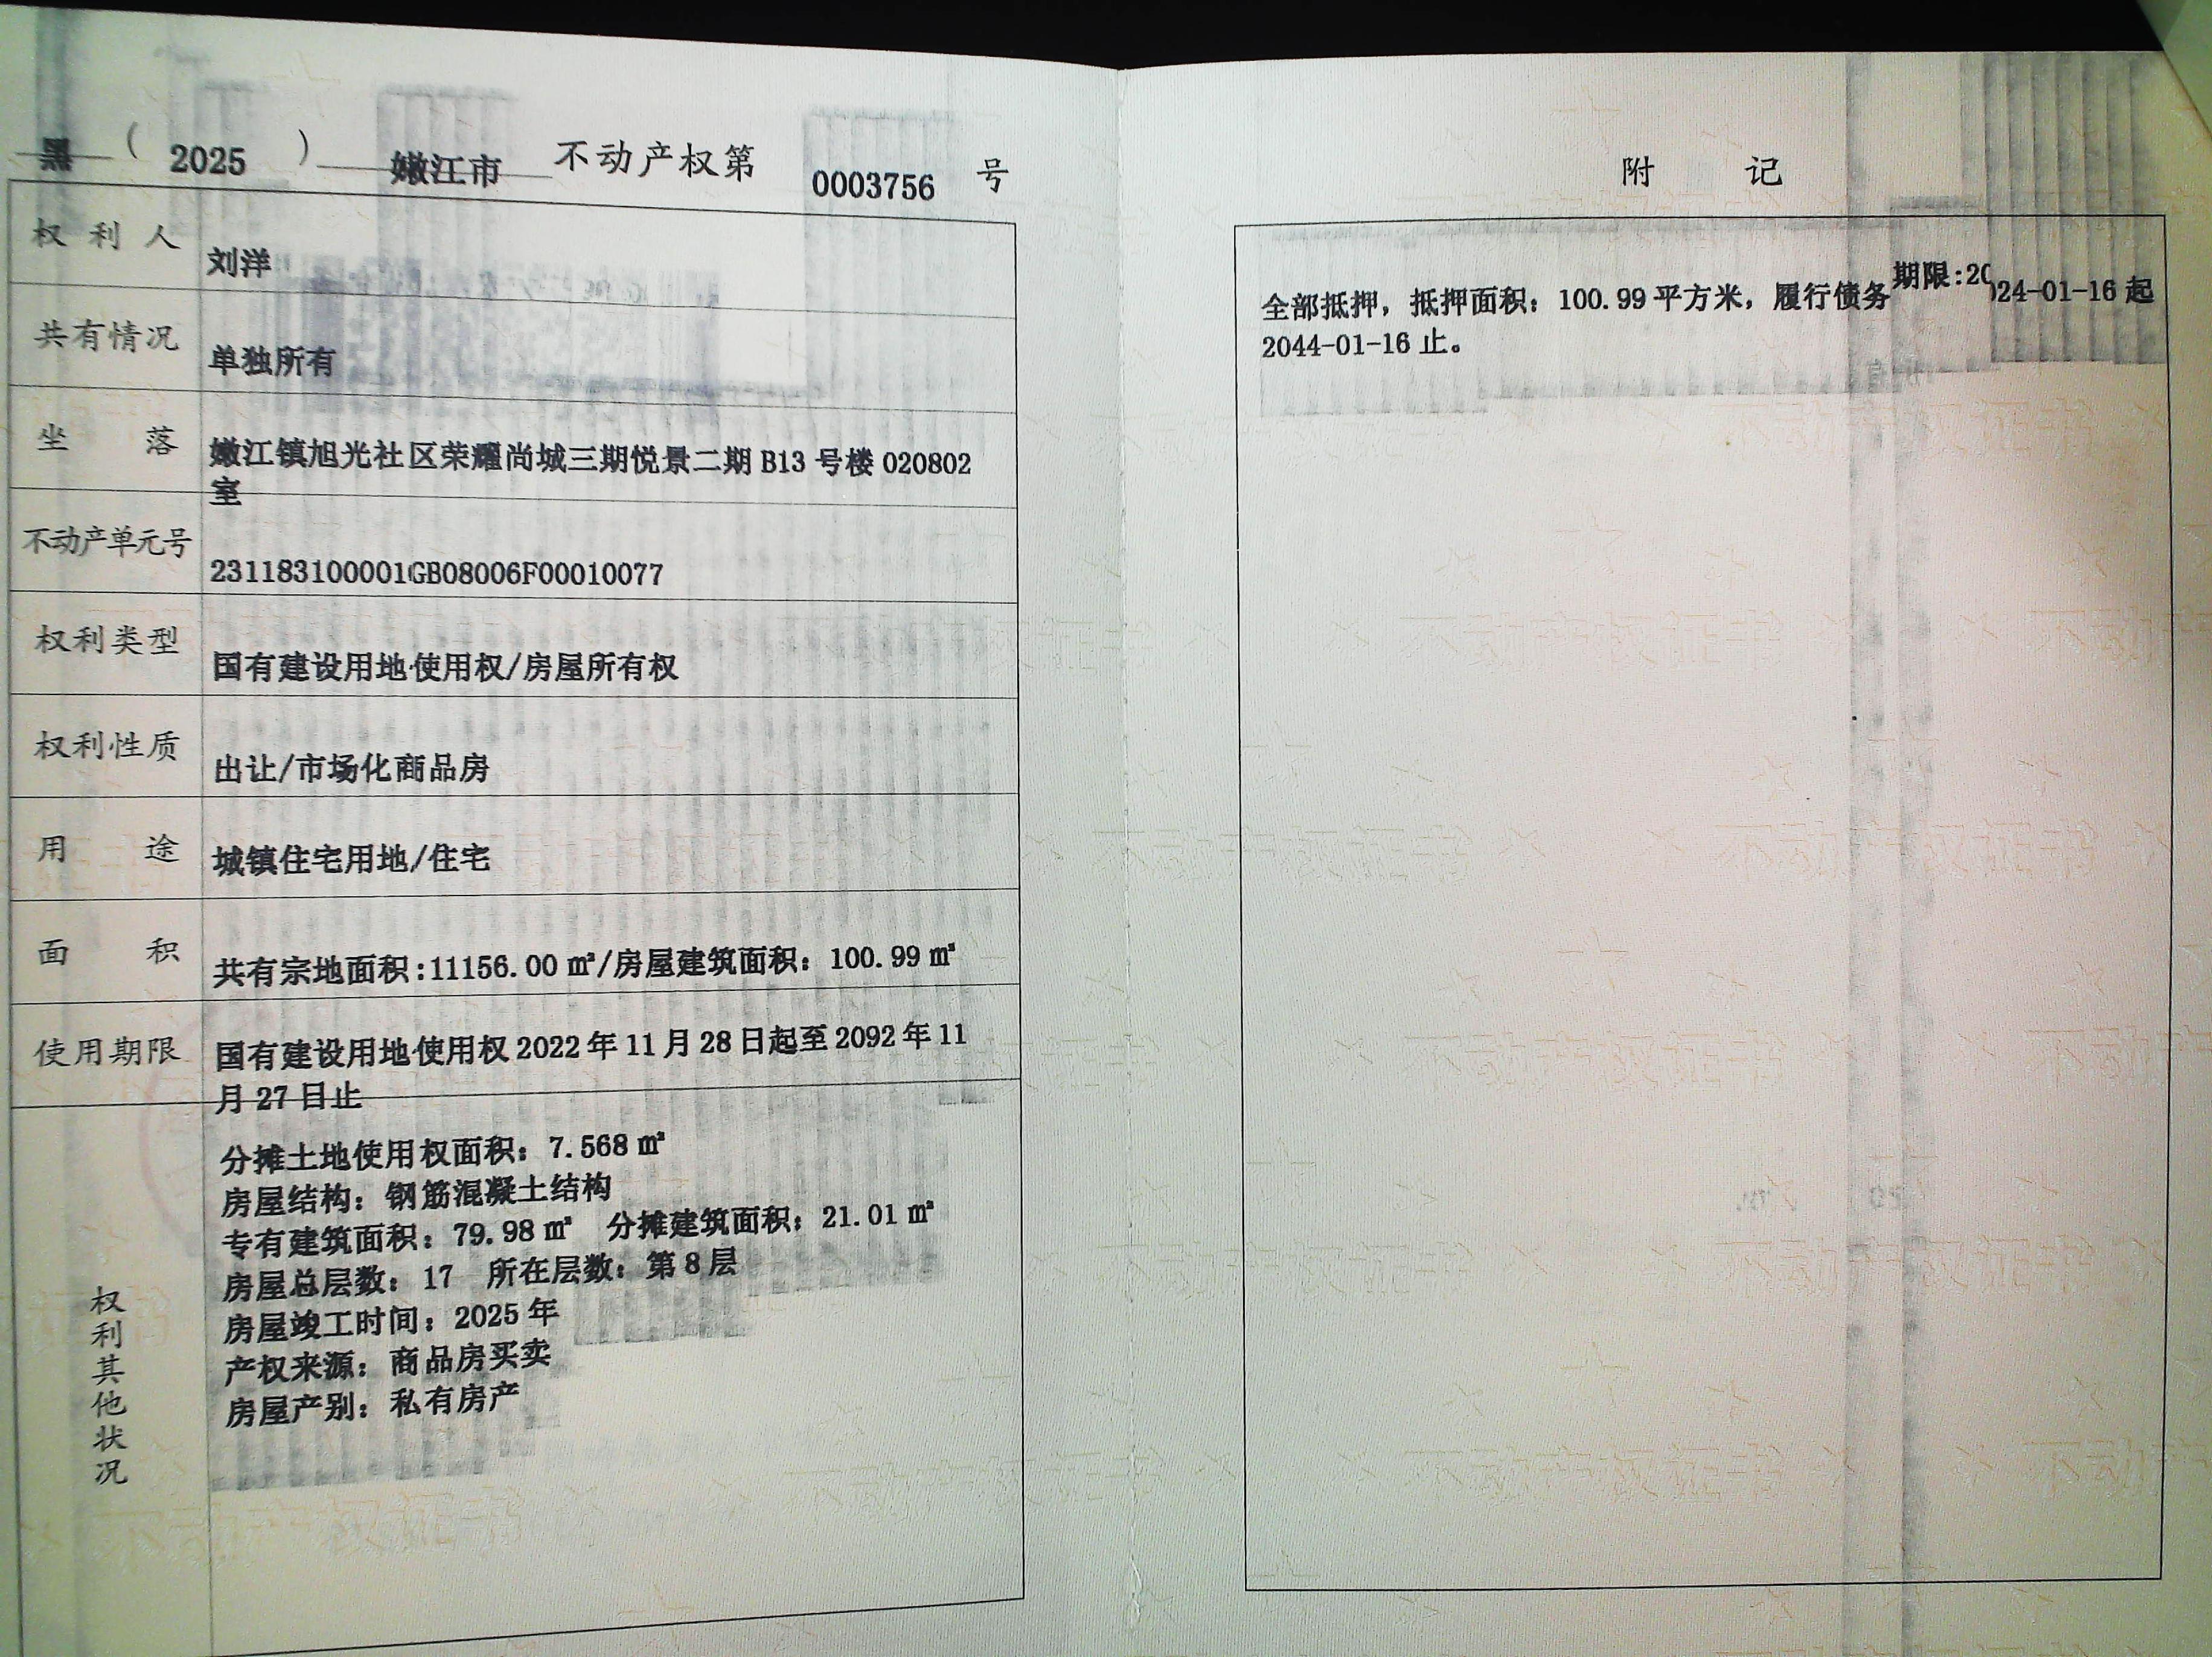 黑（2025）嫩江市 不动产权第 0003756 号
权利人 刘洋
共有情况 单独所有
坐落 嫩江镇旭光社区荣耀尚城三期悦景二期 B13 号楼 020802
室
不动产单元号 231183100001GB08006F00010077
权利类型 国有建设用地使用权/房屋所有权
权利性质 出让/市场化商品房
用途 城镇住宅用地/住宅
面积 共有宗地面积:11156.00 ㎡/房屋建筑面积：100.99 ㎡
使用期限 国有建设用地使用权 2022 年 11 月 28 日起至 2092 年 11
月 27 日止
权利其他状况
分摊土地使用权面积：7.568 ㎡
房屋结构：钢筋混凝土结构
专有建筑面积：79.98 ㎡ 分摊建筑面积：21.01 ㎡
房屋总层数：17 所在层数：第 8 层
房屋竣工时间：2025 年
产权来源：商品房买卖
房屋产别：私有房产
附记
全部抵押，抵押面积：100.99 平方米，履行债务期限:2024-01-16 起
2044-01-16 止。